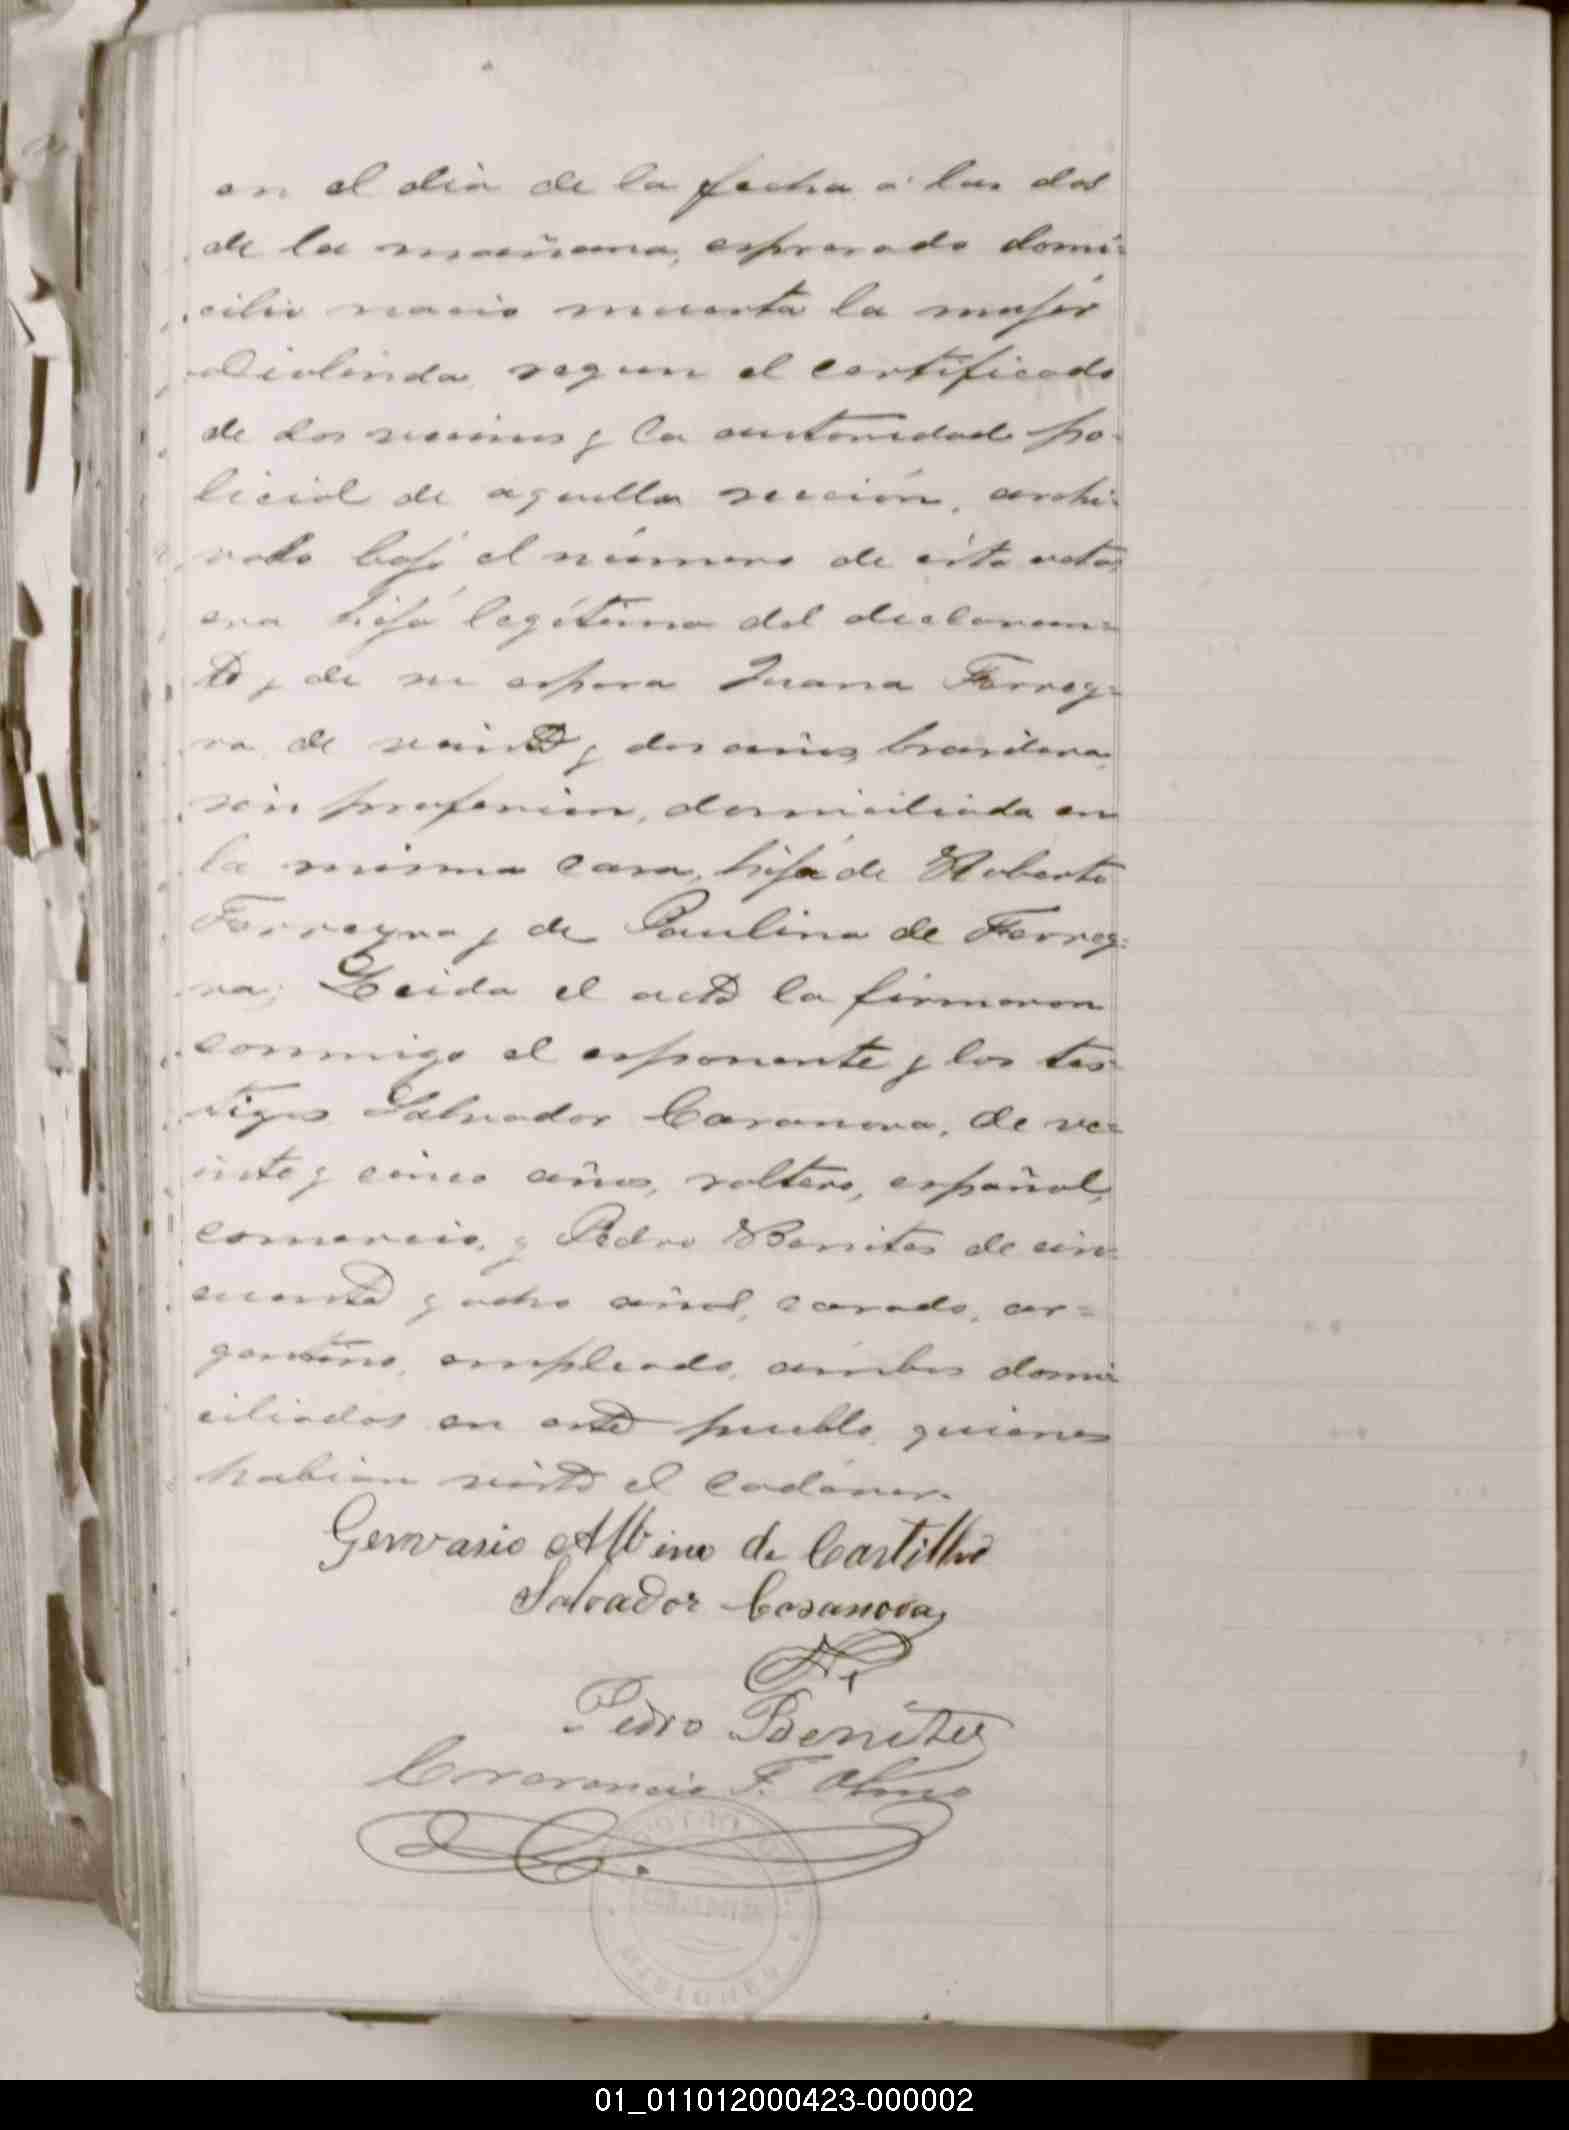 en el dia de la fecha á las dos
de la mañana, espresado domi=
cilio nació muerta la mujér
Diolinda, segun el certificado
de dos vecinos y la autoridad po-
licial de aquella sección, archi-
vado bajó el número de ésta acta,
era hijá legítima del declaran=
te y de su esposa Juana Ferrey=
ra, de veinte y dos años, brasilera,
sin profesion, domiciliada en
la misma casa, hijá de Roberto
Ferreyra y de Paulina de Ferrey=
ra; Leida el acta la firmaron
conmigo el esponente y los tes-
tigos Salvador Casanova, de ve=
inte y cinco años, soltero, español,
comercio, y Pedro Benites de cin-
cuenta y ocho años, casado, ar=
gentino, empleado, ambos domi-
ciliados en este pueblo, quienes
habian visto el cadáver.
Gervasio Albino de Castilho
Salvador Casanova
Pedro Benitez
F. Olmo
01_011012000423-000002